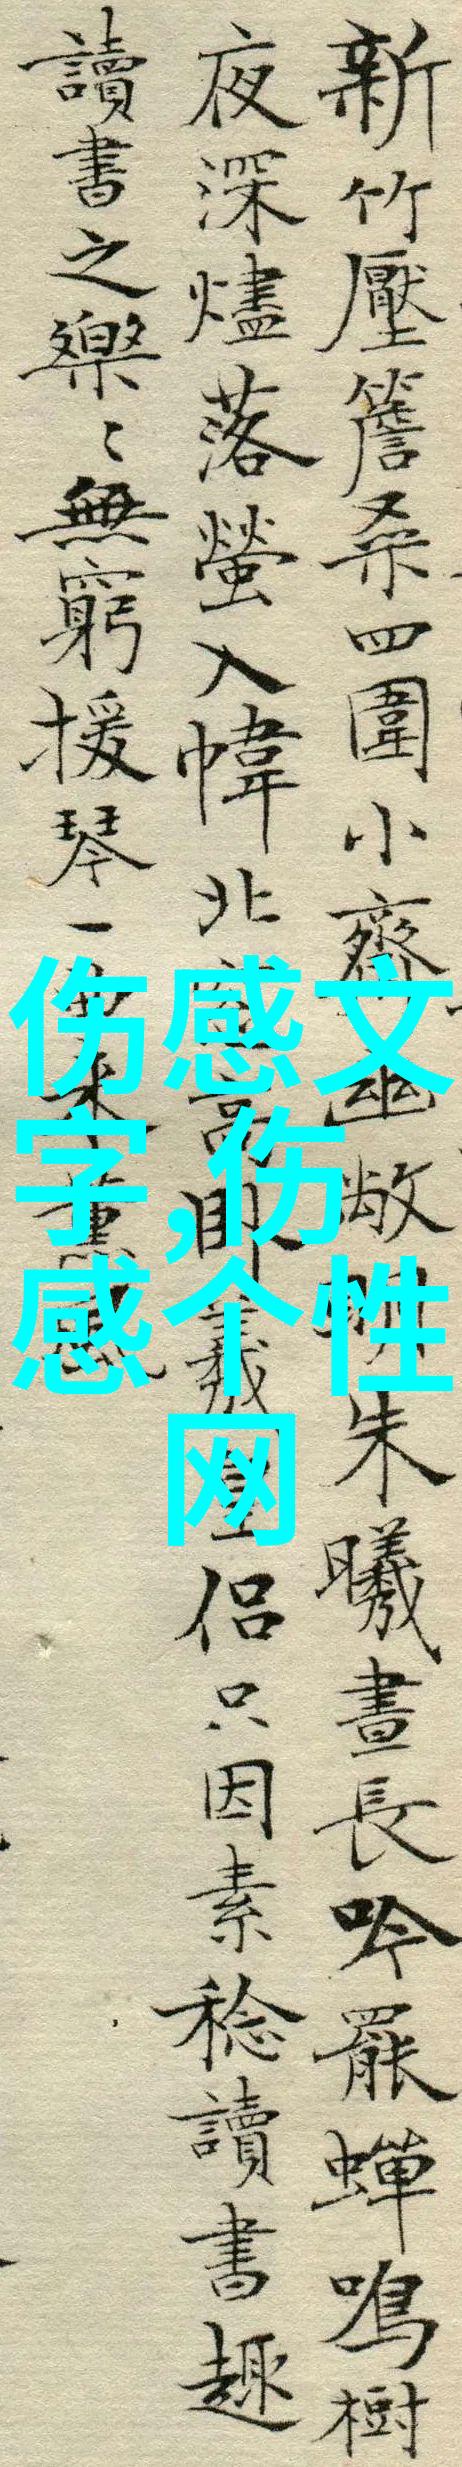 新竹壓簷桑四圍小齋幽敞明朱曦晝長吟罷蟬鳴樹
夜深燼落螢入幃北窗高卧羲皇侶只因素稔讀書趣
讀書之樂〻無窮援琴一曲來薰風
伤感文
字,伤
感个性
网